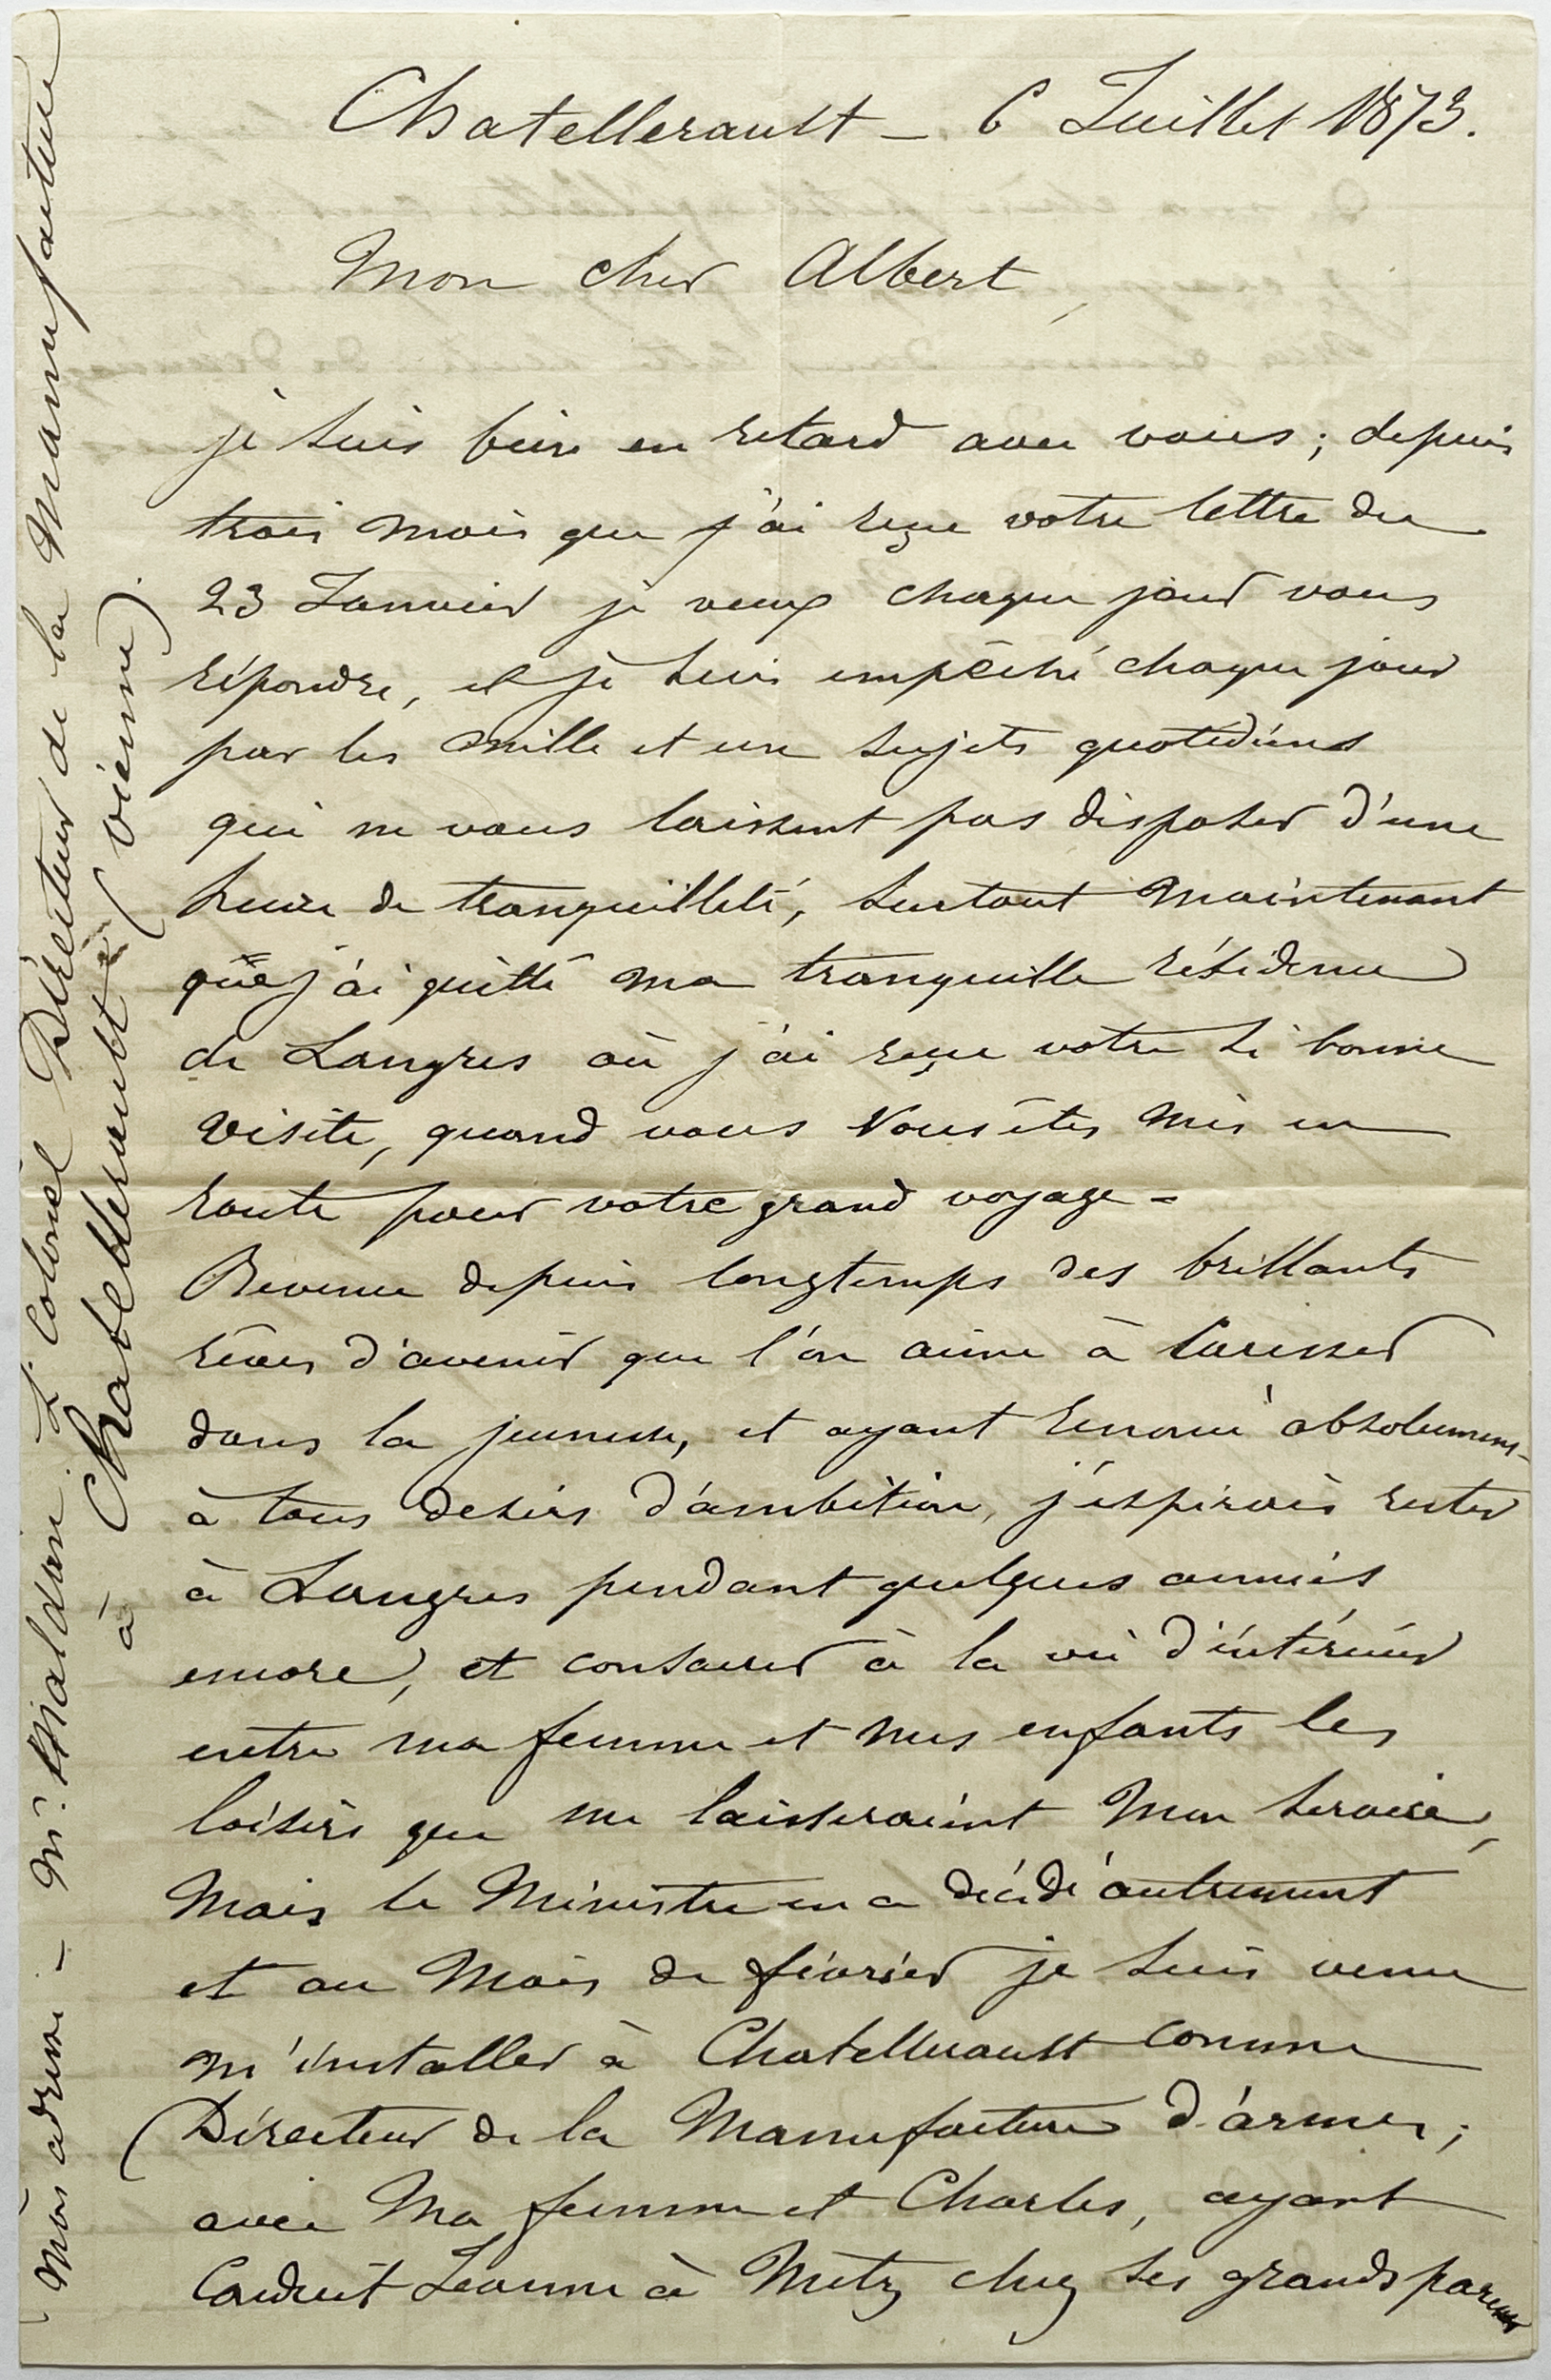 Chatellerault – 6 Juillet 1873.
Mon cher Albert,
je suis bien en retard avec vous ; depuis
trois mois que j'ai reçu votre lettre du
23 Janvier je veux chaque jour vous
répondre, et je suis empêché chaque jour
par les mille et un sujets quotidiens
qui ne vous laissent pas disposer d'une
heure de tranquilleté, surtout maintenant
que j'ai quitté ma tranquille résidence
de Langres où j'ai reçu votre si bonne
visite, quand vous vous êtes mis en
route pour votre grand voyage –
Revenu depuis longtemps des brillants
rêves d'avenir que l'on aime à caresser
dans la jeunesse, et ayant renoncé absolument
à tous desirs d'ambition, j'espérais rester
à Langres pendant quelques années
encore, et consacrer à la vie d'intérieur
entre ma femme et mes enfants les
loisirs que me laisseraient mon service,
Mais le Ministre en a décidé autrement
et au mois de février je suis venu
m'installer à Chatellerault comme
Directeur de la Manufacture d'armes ;
avec ma femme et Charles, ayant
conduit Jeanne à Metz chez ses grands parents
(Mon adresse – Mr. Maldan Lt Colonel Directeur de la Manufacture
à Chatellerault (Vienne).